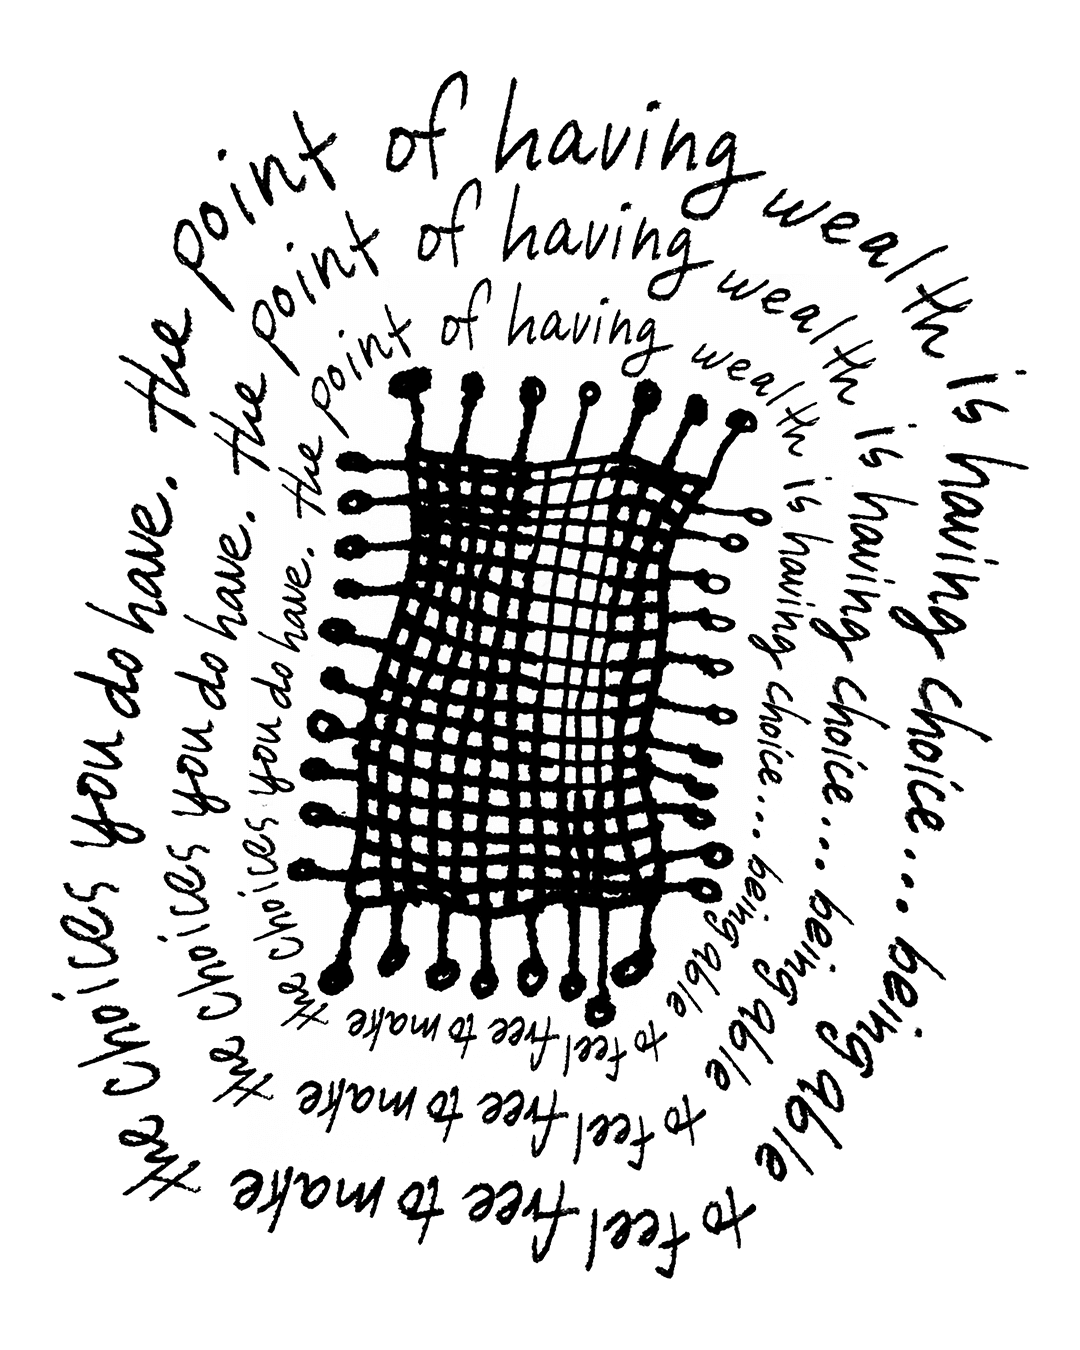 the point of having wealth is having choice.... being able to feel free to make the choices you do have.
the point of having wealth is having choice.... being able to feel free to make the choices you do have.
the point of having wealth is having choice.... being able to feel free to make the choices you do have.